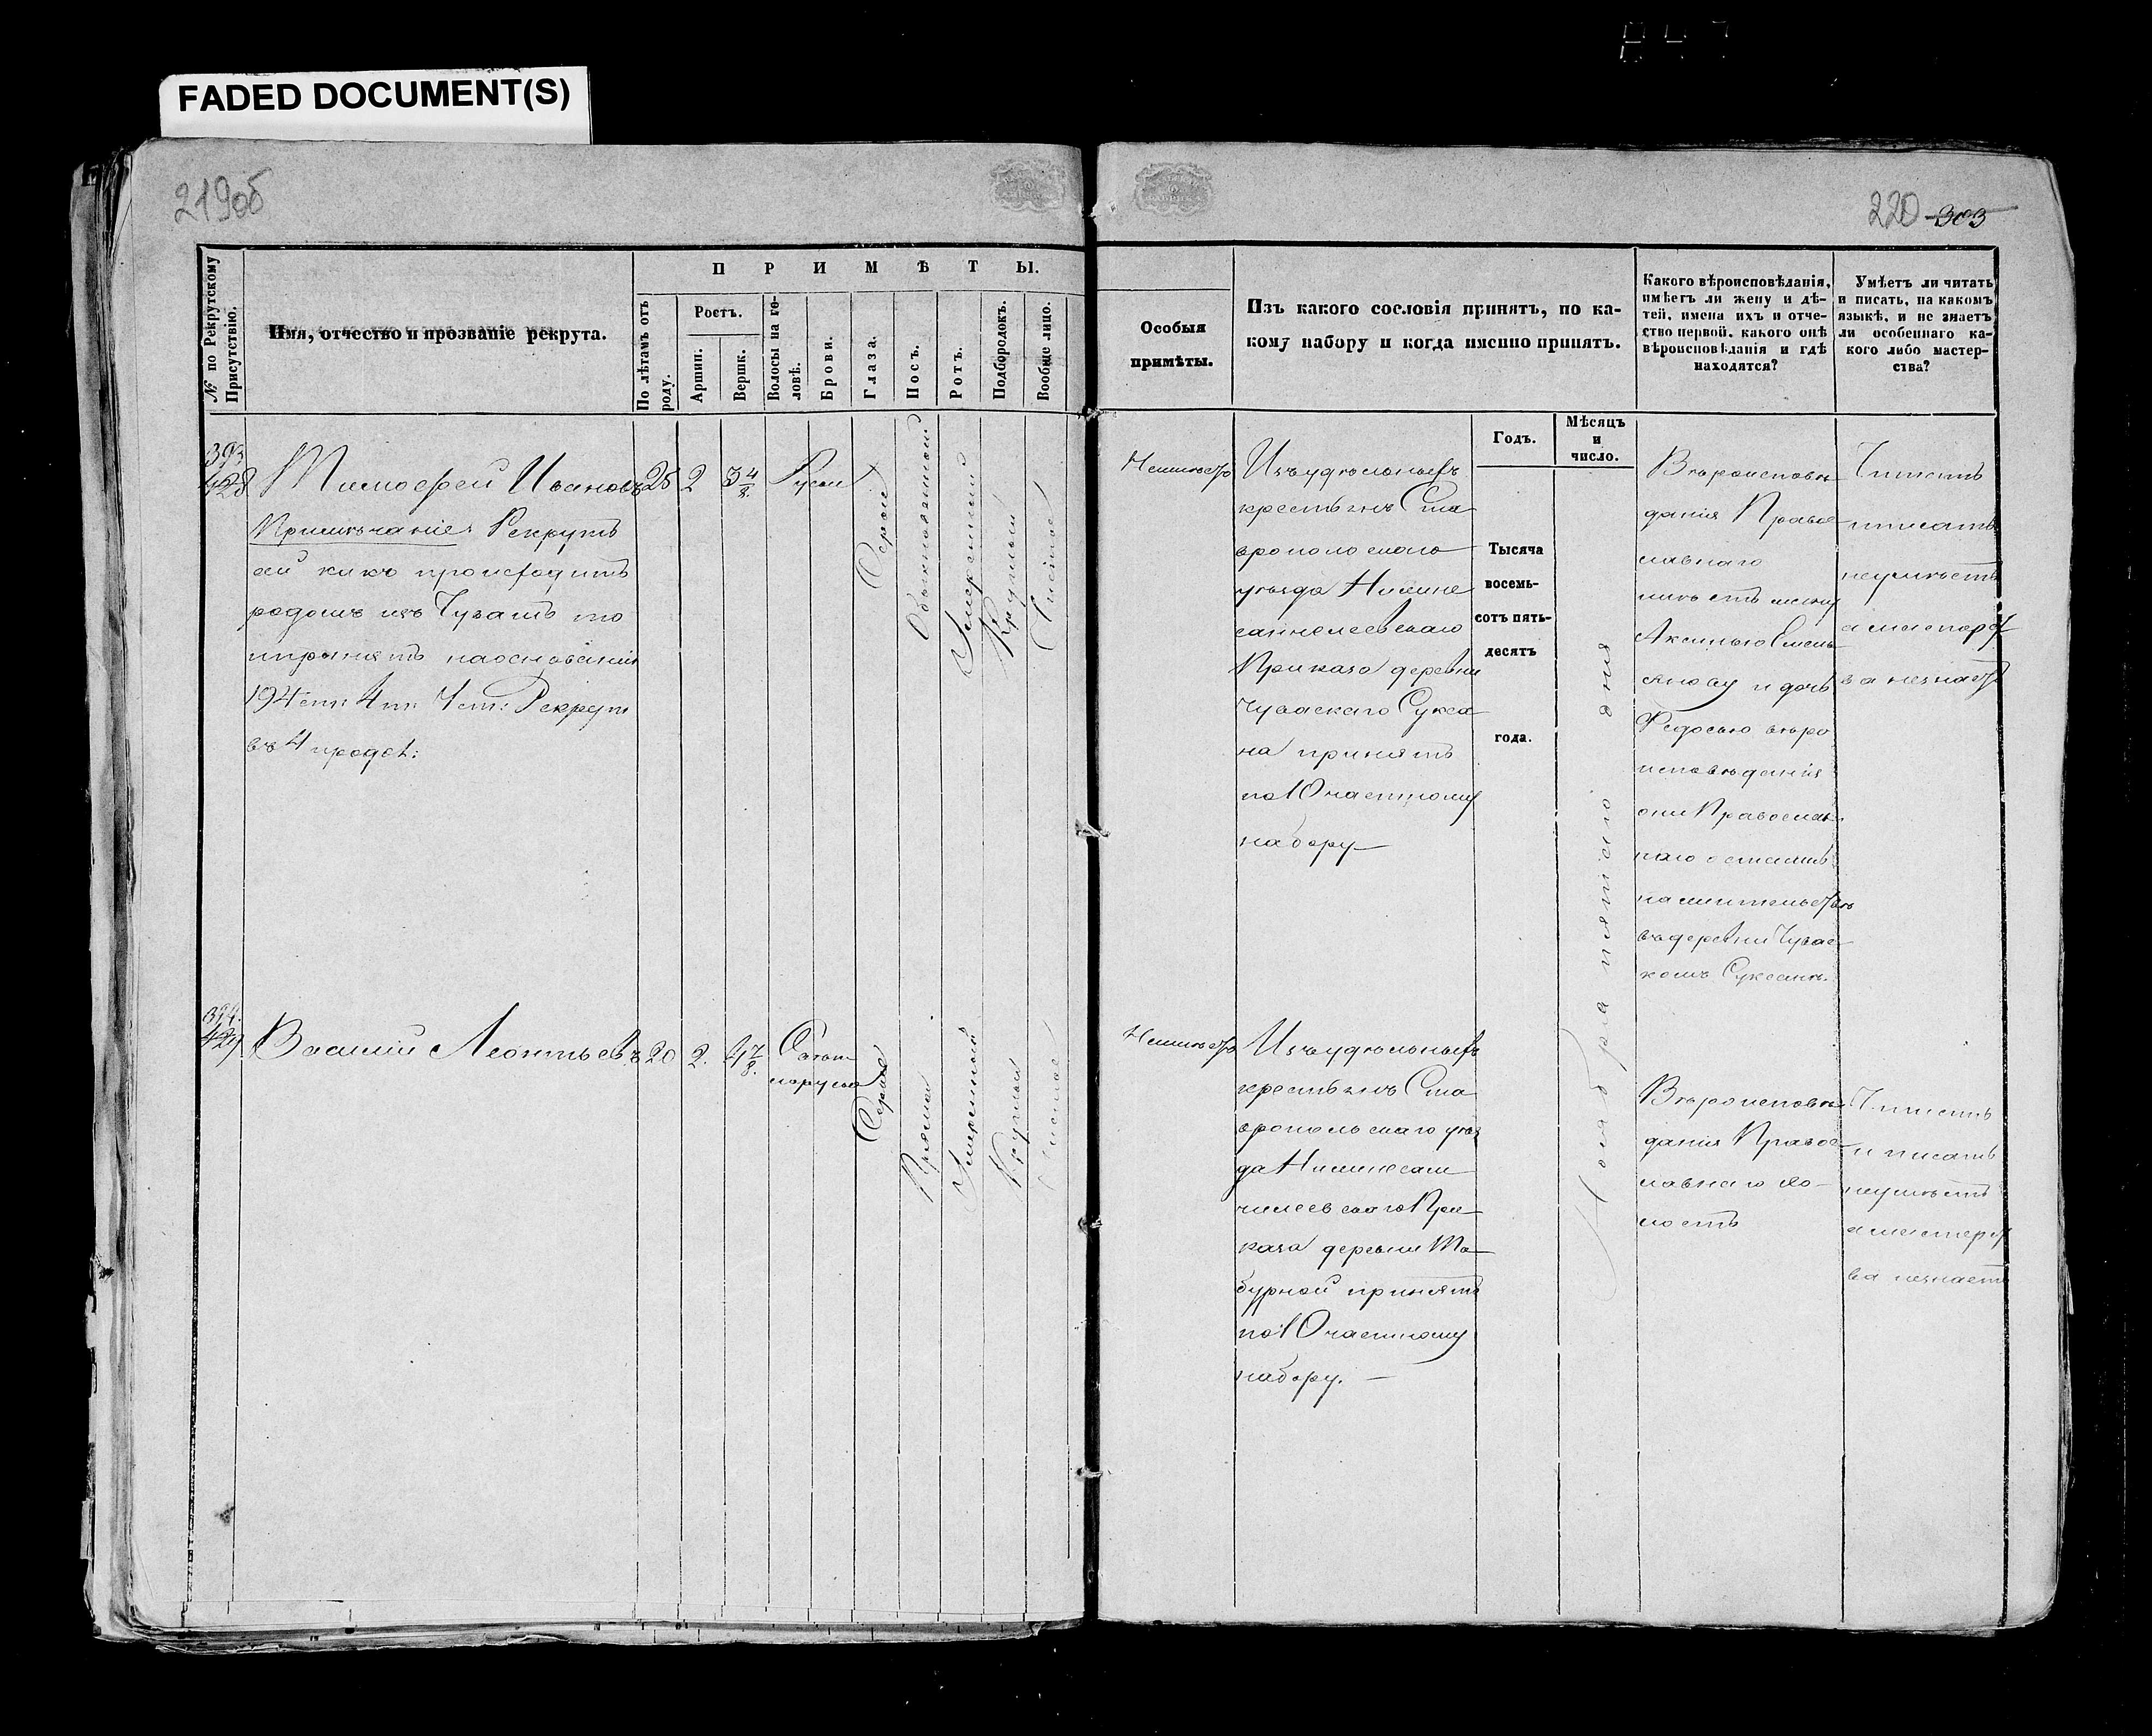 FADED DOCUMENT(S)
219об
220 303
№ по Рекрутскому
Присутствію.
Имя, отчество и прозваніе рекрута.
П Р И М Ѣ Т Ы.
По лѣтамъ отъ
роду.
Ростъ.
Аршин.
Вершк.
Волосы на го-
ловѣ.
Брови.
Глаза.
Носъ.
Ротъ.
Подбородокъ.
Вообще лицо.
Особыя
примѣты.
Изъ какого сословія принятъ, по ка-
кому набору и когда именно принятъ.
Какого вѣроисповѣданія,
имѣетъ ли жену и дѣ-
тей, имена ихъ и отче-
ство первой, какого онѣ
вѣроисповѣданія и гдѣ
находятся?
Умѣетъ ли читать
и писать, на какомъ
языкѣ, и не знаетъ
ли особеннаго ка-
кого либо мастер-
ства?
Годъ.
Мѣсяцъ
и
число.
393
428
Тимофей Ивановъ
25
2
3 4/8
Русые
Сѣрые
Обыкновенный
Умѣренный
Круглый
Чистое
Примѣчаніе: Рекрутъ
сей какъ происходитъ
родомъ изъ Чувашъ то
и принятъ на основаніи
194 ст: 4 т: 1 ст: Рекрут
въ 4 продол:
Неимѣетъ
Изъ удѣльныхъ
крестьянъ Ста
вропольскаго
уѣзда Нижне
санчелеевскаго
Приказа деревни
Чувашскаго Сукса
на принятъ
по 10 частному
набору
Тысяча
восемь-
сотъ пять-
десятъ
года.
Ноября пятаго дня
Вѣроисповѣ
данія Право
славнаго
имѣетъ жену
Аксинью Семе
нову и дочь
Федосью вѣро
исповѣданія
они Православ
наго
на жительствѣ
въ деревни Чуваш
комъ Суксанѣ.
Читать
и писать
неумѣетъ
а мастерст
ва незнаетъ
394
429
Василій Леонтьевъ
20
2.
4 7/8.
Свѣтло
русые
Сѣрые
Прямой
Умѣренный
Круглый
Чистое
Неимѣетъ
Изъ удѣльныхъ
крестьянъ Ста
вропольскаго уѣз
да Нижнесан
челеевскаго При
каза деревни Та
бурной принятъ
по 10 частному
набору. —
Вѣроисповѣ
данія Право
славнаго хо-
лостъ
Читать
и писать
неумѣетъ
а мастерст
ва незнаетъ